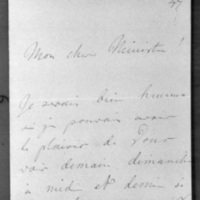 Mon cher Ministre !
Je serais bien heureux
si je pouvais avoir
le plaisir de vous
voir demain dimanche
à midi et demie